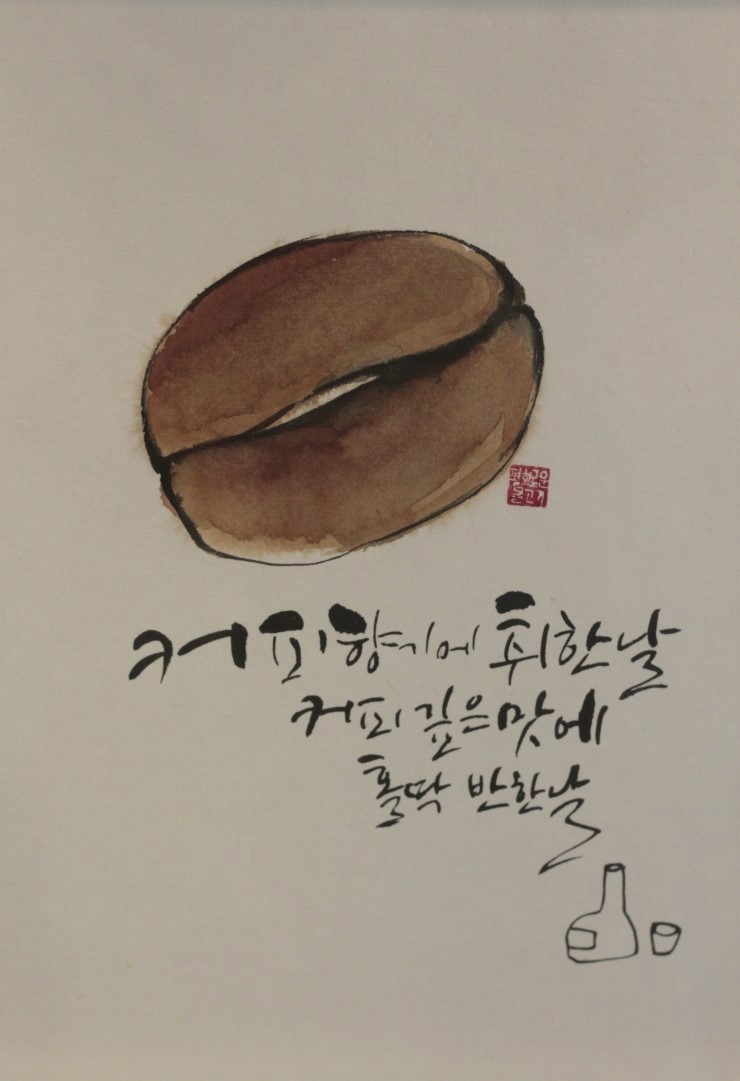 커피향기에 취한날
커피 깊은 맛에
홀딱 반한날